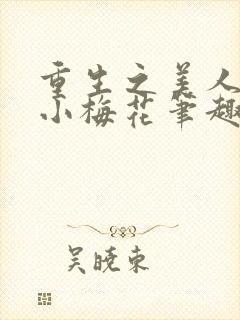 重生之美人
小梅花筆趣
吴晓东